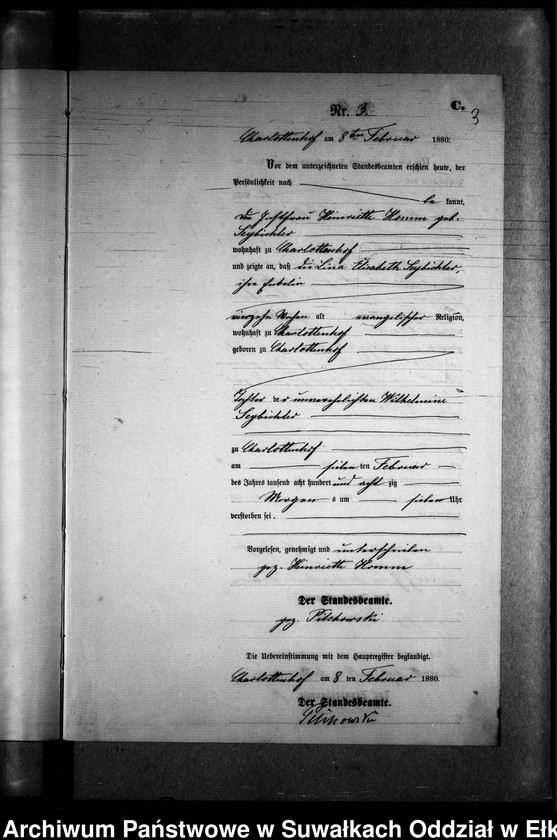 C.
3
Nr. 3.
Charlottenhof am 8ten Februar 1880.
Vor dem unterzeichneten Standesbeamten erschien heute, der
Persönlichkeit nach
be kannt,
die Instfrau Heinriette Komm geb.
Seybichler
wohnhaft zu Charlottenhof
und zeigte an, daß die Lina Elisabeth Seybichler,
ihre Enkelin
vierzehn Wochen alt evangelischer Religion,
wohnhaft zu Charlottenhof
geboren zu Charlottenhof
Tochter der unverehelichten Wilhelmine
Seybichler
zu Charlottenhof
am sieben ten Februar
des Jahres tausend acht hundert und acht zig
Morgen s um sieben Uhr
verstorben sei.
Vorgelesen, genehmigt und unterschrieben
gez. Heinriette Komm
Der Standesbeamte.
gez. Pilchowski
Die Uebereinstimmung mit dem Hauptregister beglaubigt.
Charlottenhof am 8 ten Februar 1880.
Der Standesbeamte.
Pilchowski
Archiwum Państwowe w Suwałkach Oddział w Ełk